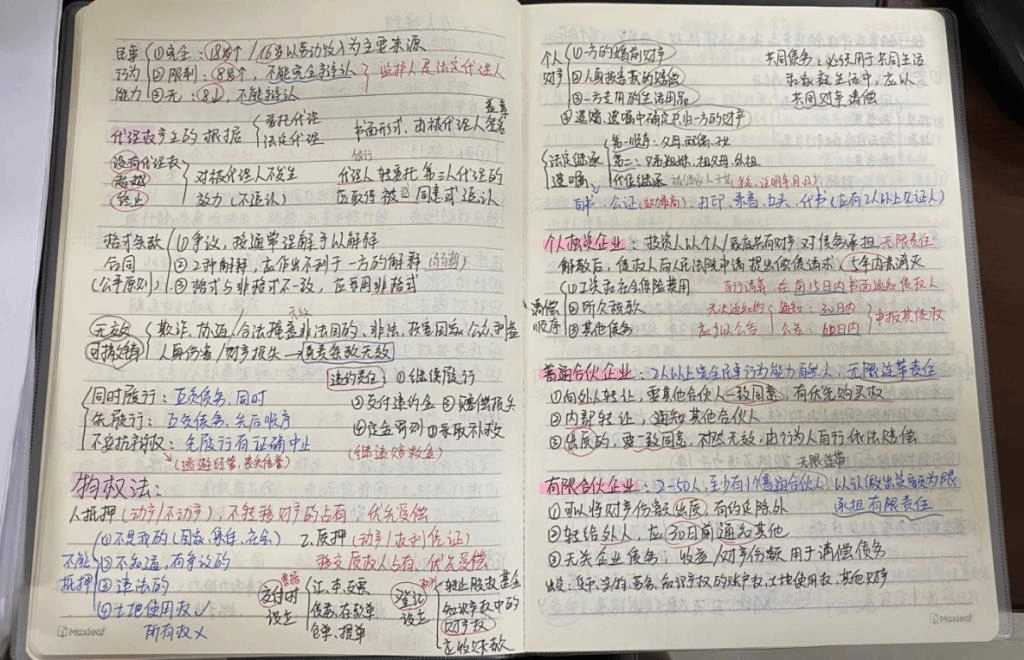 民事 ①完全：(18岁↑ / 16岁以劳动收入为主要来源
行为 ②限制：(8岁↑, 不能完全辨认 } 监护人是法定代理人
能力 ③无：(8↓, 不能辨认
代理权产生的根据 { 委托代理 书面形式, 由被代理人签名 盖章
法定代理
没有代理权
超越 对被代理人不发生 代理人转委托第三人代理的
终止 效力 (不追认) 应取得被 同意或追认
格式条款 ①争议, 按通常理解予以解释
合同 ②2种解释, 应作出不利于一方的解释
(公平原则) ③格式与非格式不一致, 应采用非格式
无效 欺诈、胁迫/合法掩盖非法目的、非法, 损害国家公众利益
可撤销 人身伤害/财产损失→免责条款无效
违约责任：①继续履行
同时履行：互负债务, 同时 ②支付违约金 ③赔偿损失
先履行：互负债务, 先后顺序 ④定金罚则 ⑤采取补救
不安抗辩权：先履行有证确中止
(逃避经营, 丧失信誉)
物权法：
人抵押 (动产/不动产), 不转移财产的占有, 优先受偿
不能 ①不是我的 (国家, 集体, 社会) 2.质押 (动产/权利凭证)
抵押 ②不知道, 有争议的 移交债权人占有, 优先受偿
③违法的 交付时 设立 汇、本、支票 登记 设立 转让股权 基金
④土地使用权✓ 债券、存款单 知识产权中的 财产权
所有权× 仓单、提单 应收账款
Maxleaf
个人 ①一方的婚前财产 共同债务：必须用于共同生活
财产 ②人身损害的赔偿
③一方专用的生活用品 共同财产清偿
④遗嘱、遗赠中确定只归一方的财产
法定继承 第一顺序：父母, 配偶, 子女
遗嘱 第二：兄弟姐妹, 祖父母, 外祖
代位继承 (签名、注明年月日)
自书、公证(效力最高)、打印、录音、口头、代书 (应有2人以上见证人)
个人独资企业：投资人以个人/家庭共有财产对债务承担无限责任
解散后, 债权人向人民法院申请提出偿债请求, 5年内未消灭
清偿 顺序 ①工资和社会保险费用 自行清算, 在前15日内书面通知债权人
②所欠税款 无法通知的 通知：30日内 申报其债权
③其他债务 应予以公告 公告：60日内
普通合伙企业：2人以上完全民事行为能力自然人, 无限连带责任
①向外人转让, 要其他合伙人一致同意, 有优先购买权
②内部转让, 通知其他合伙人
③出质的, 要一致同意, 对然无效, 由行为人自行依法赔偿
无限连带
有限合伙企业：2-50人, 至少有1个普通合伙人, 以认缴出资额为限
①可以将财产份额出质, 有约定除外 承担有限责任
②转给外人, 应30日前通知其他
③无关企业债务, 收益/财产份额用于清偿债务
出资：货币, 实物, 劳务, 知识产权的财产权, 土地使用权, 其他财产
Maxleaf